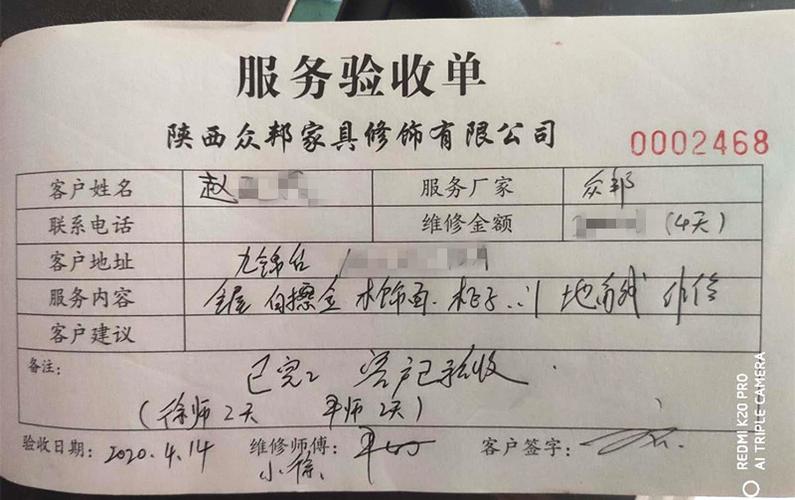 服务验收单
陕西众邦家具修饰有限公司 0002468
客户姓名 赵 服务厂家 众邦
联系电话 维修金额 (4天)
客户地址 九锦台
服务内容 全屋 白擦金 木饰面. 柜子. 门 地 维修
客户建议
备注: 已完工 客户已验收
(徐师2天 平师2天)
验收日期: 2020.4.14 维修师傅: 客户签字:
小徐
REDMI K20 PRO
AI TRIPLE CAMERA